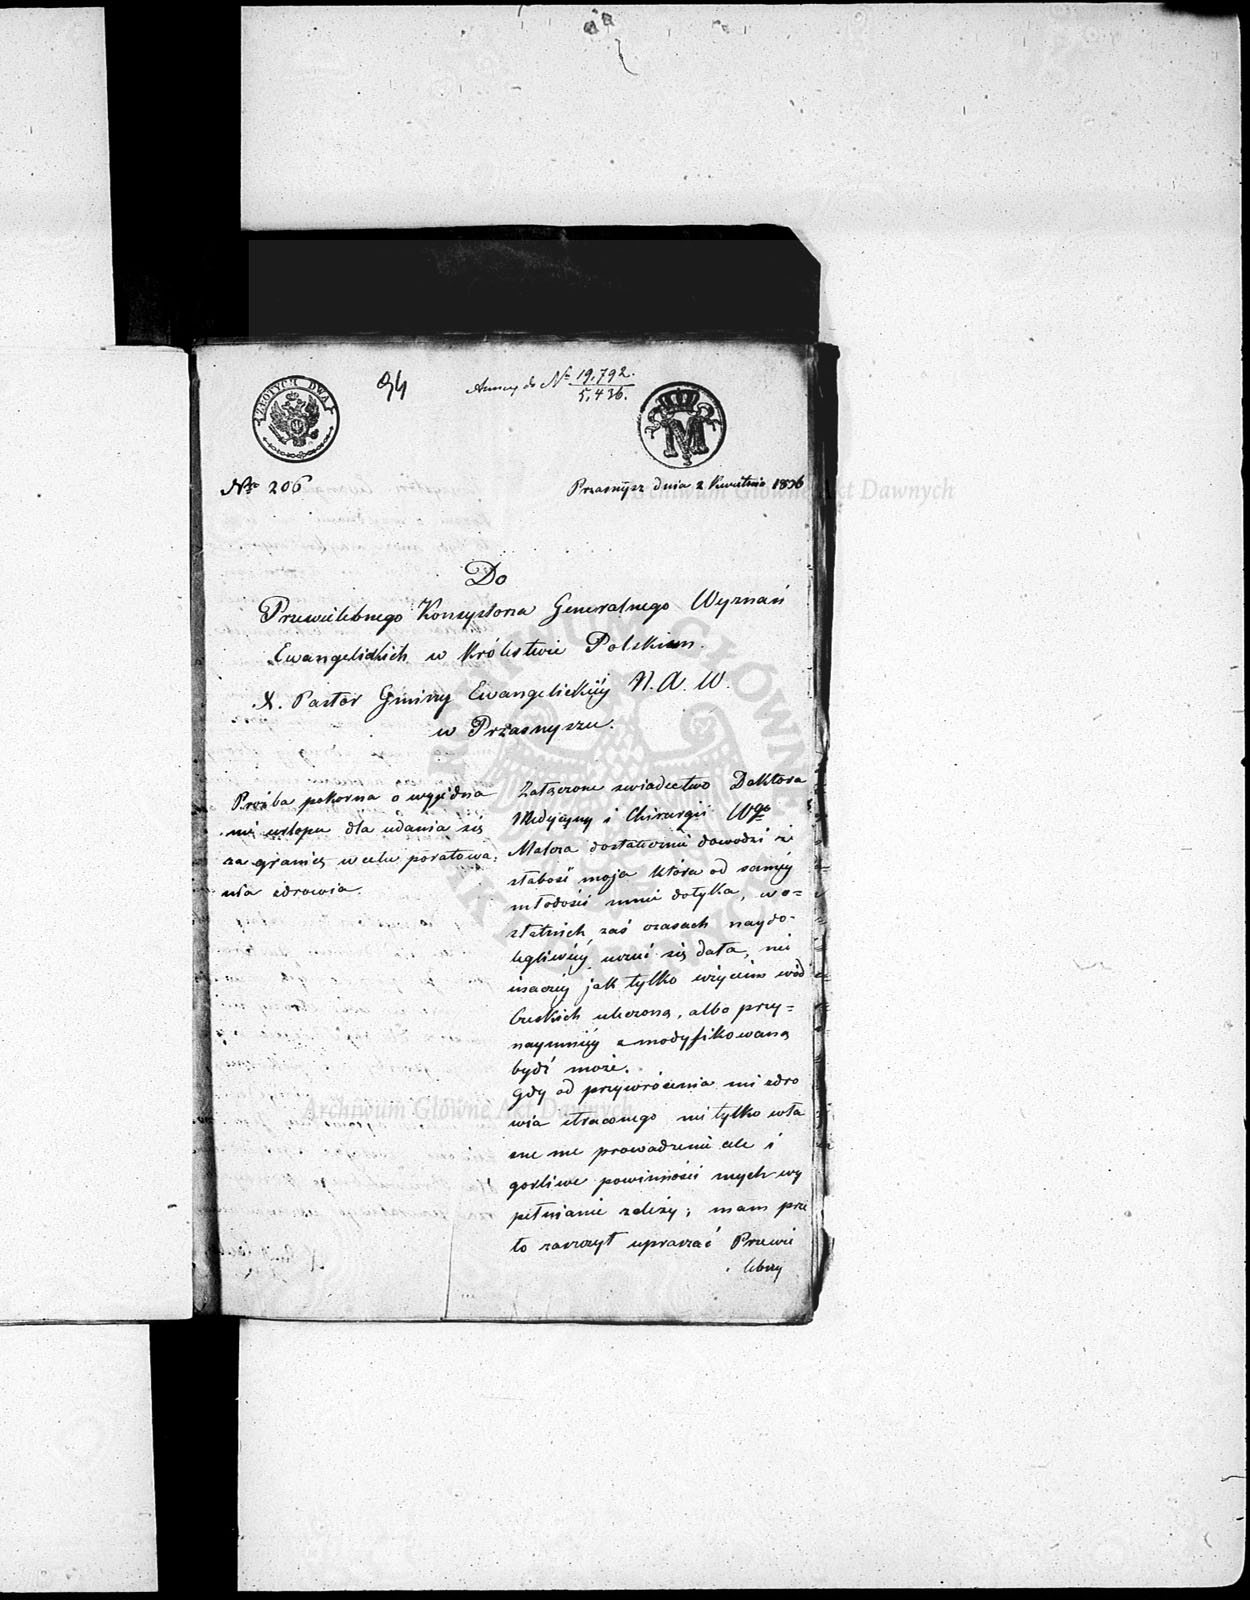 94
Annexy do Nº 19,792.
5,436.
ZŁOTYCH DWA
M
Nro 206
Przasnysz dnia 2 Kwietnia 1836
Do
Przewielebnego Konsystorza Generalnego Wyznań
Ewangelickich w Królestwie Polskiem.
X. Pastor Gminy Ewangelickiéy N. A. W.
w Przasnyszu.
Prośba pokorna o wyjedna
nie urlopu dla udania się
za granicę w celu poratowa,
nia zdrowia.
Załączone swiadectwo Doktora
Medycyny i Chirurgii Wgo
dostatecznie dowodzi że
słabość moja która od saméy
młodości mnie dotyka, w o-
statnich zaś czasach naydo-
legliwiéy uczuć się dała, nie
inaczéy jak tylko użyciem wód
uleczoną, albo przy-
naymniéy zmodyfikowaną
bydź może.
Gdy od przywrócenia mi zdro
wia straconego nie tylko wła
sne me prowadzenie ale i
gorliwe powinności mych wy
pełnianie zależy; mam prze
to zaszczyt upraszać Przewie
lebny
Archiwum Główne Akt Dawnych
Archiwum Główne Akt Dawnych